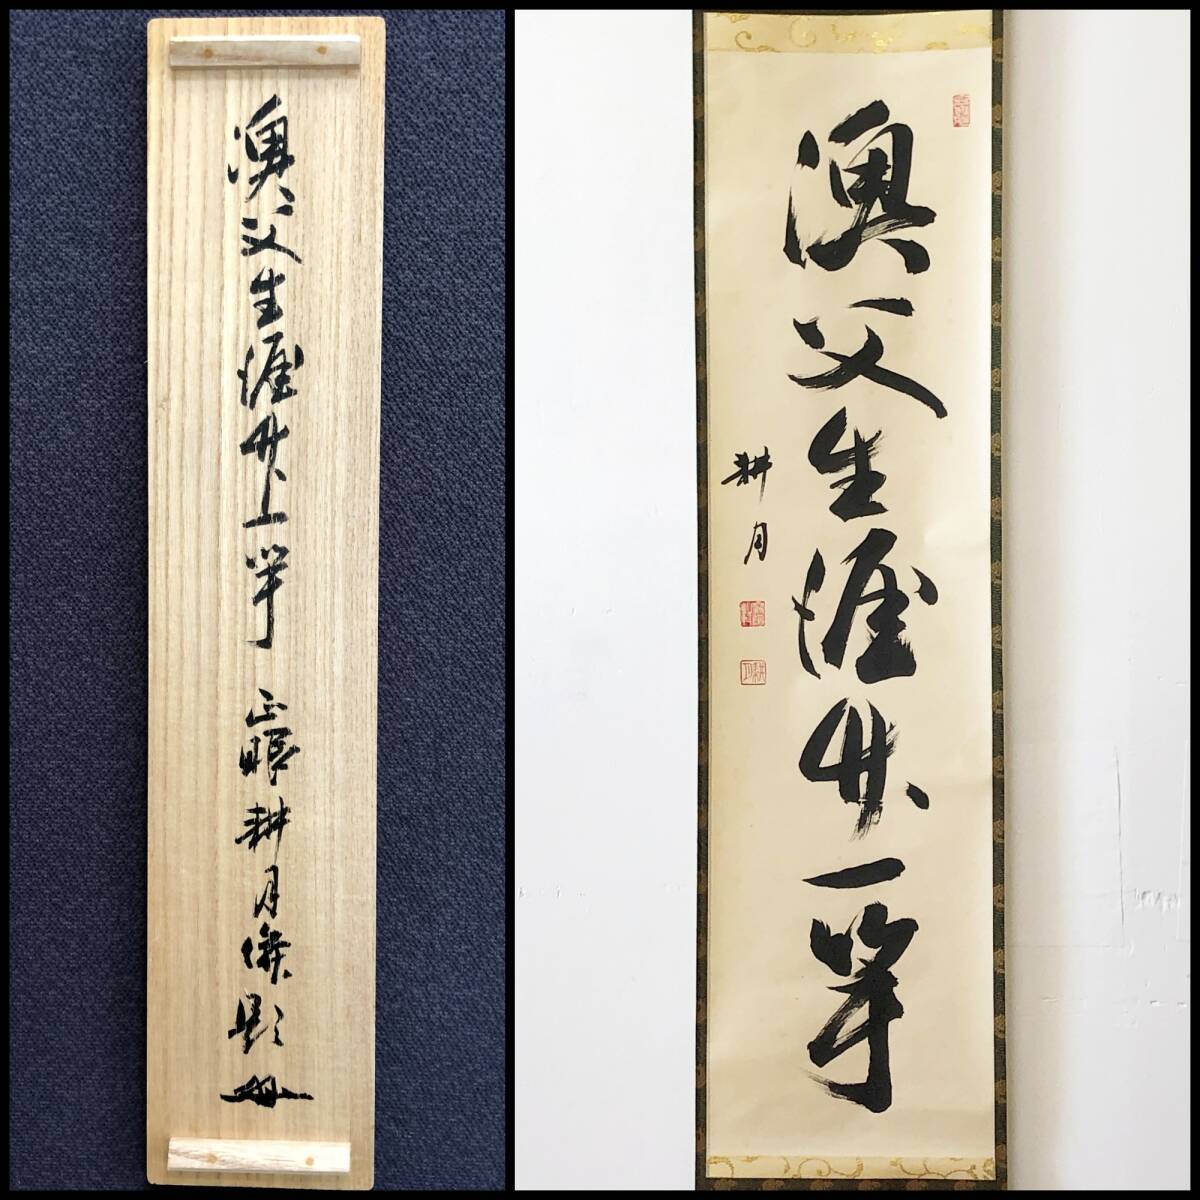 漁父生涯竹一竿 正眼耕月題
漁父生涯竹一竿
耕月
耕月